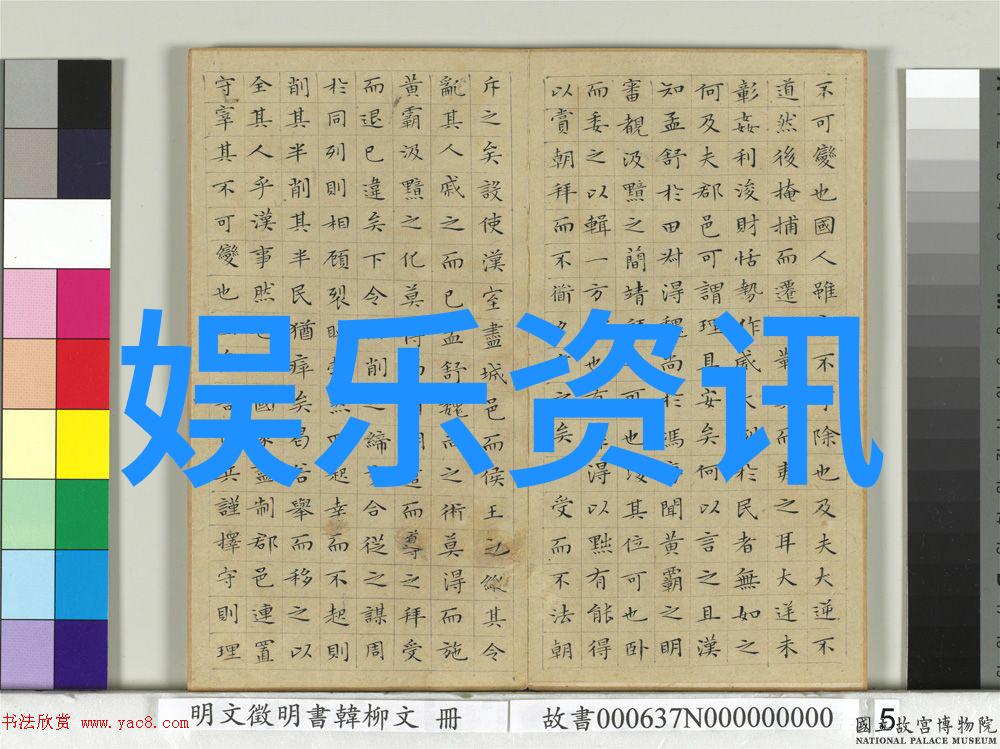 不可變也國人雖不除也及夫大逆不
道然後掩捕而遷而夷之耳大逆未
彰姦利浚財怙勢作威大於民者無如之
何及夫郡邑可謂理且安矣何以言之且漢
知孟舒於田叔得魏尚於馮聞黃霸之明
審覩汲黯之簡靖可也復其位可也卧
而委之以輯一方也有得以黜有能得
以賞朝拜而不之矣受而不法朝
斥之矣設使漢室盡城邑而侯王之縱其令
亂其人戚之而已孟舒魏尚之術莫得而施
黃霸汲黯之化莫得而而導之拜受
而退已違矣下令削之締合從之謀周
於同列則相顧裂眦然而起幸而不起則
削其半削其半民猶瘁矣曷若舉而移之以
全其人乎漢事然也國家盡制郡邑連置
守宰其不可變也兵謹擇守則理
娱乐资讯
书法欣赏 www.yac8.com
明文徵明書韓柳文 冊
故書000637N000000000
5
國立故宮博物院
NATIONAL PALACE MUSEUM